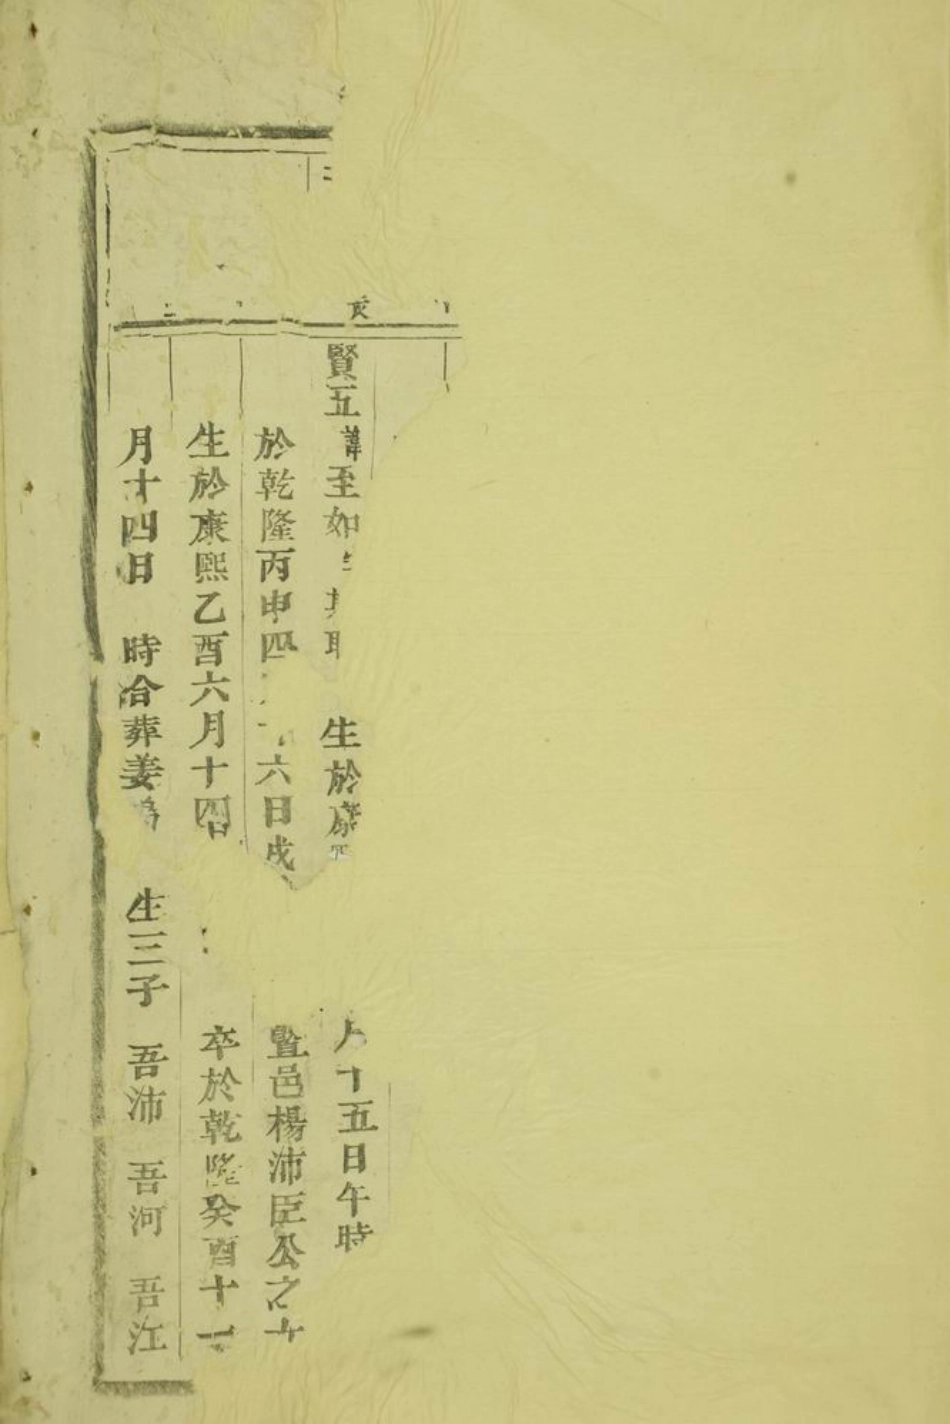 二
亥
賢五諱至如 生於康熙 月十五日午時
於乾隆丙申四 六日戌 暨邑楊沛臣公之女
生於康熙乙酉六月十四日 卒於乾隆癸酉十一
月十四日 時合葬姜塢 生三子 吾沛 吾河 吾江